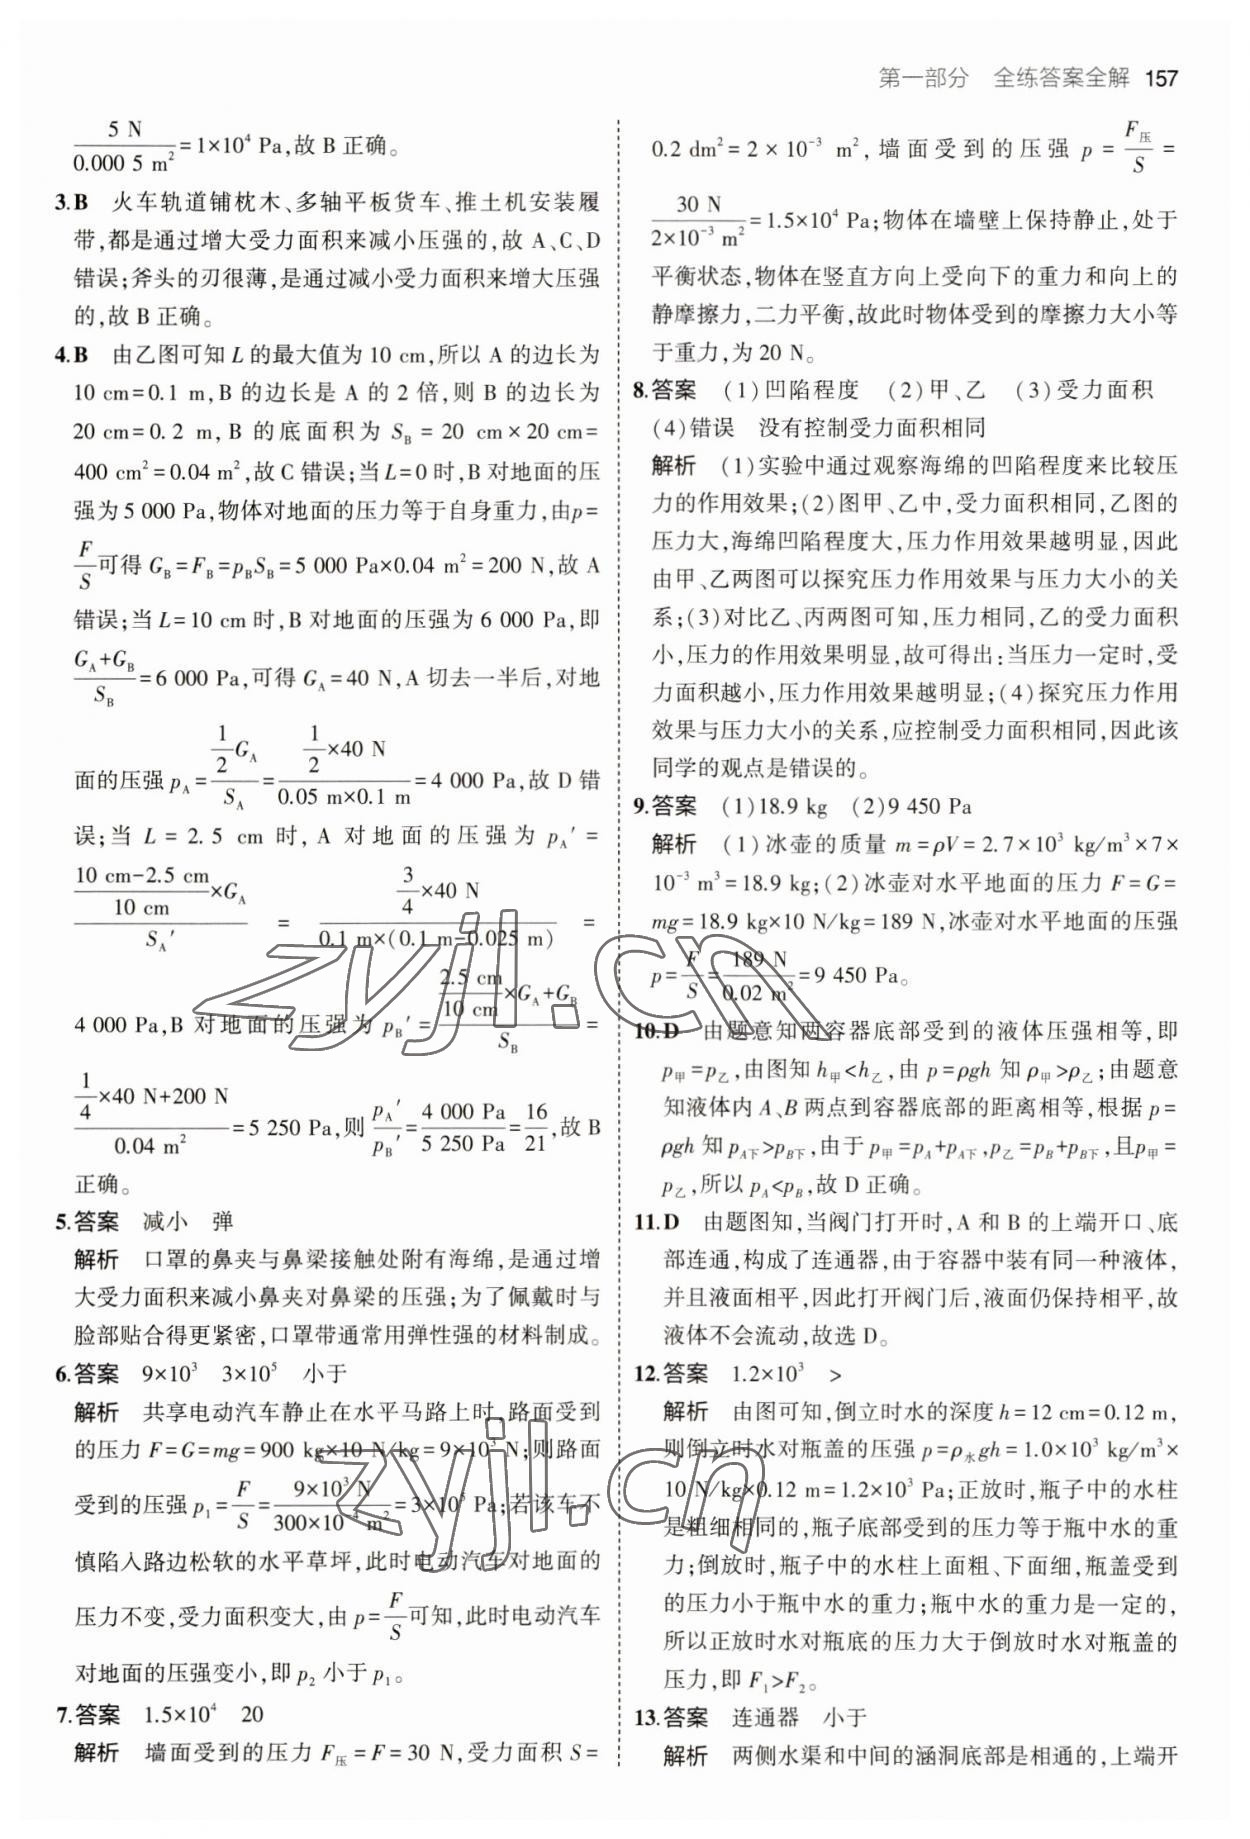 第一部分 全练答案全解 157
5 N/0.000 5 m²=1×10⁴ Pa,故 B 正确。
3.B 火车轨道铺枕木、多轴平板货车、推土机安装履
带,都是通过增大受力面积来减小压强的,故 A、C、D
错误;斧头的刃很薄,是通过减小受力面积来增大压强
的,故 B 正确。
4.B 由乙图可知 L 的最大值为 10 cm,所以 A 的边长为
10 cm=0.1 m,B 的边长是 A 的 2 倍,则 B 的边长为
20 cm=0.2 m,B 的底面积为 S_B=20 cm×20 cm=
400 cm²=0.04 m²,故 C 错误;当 L=0 时,B 对地面的压
强为 5 000 Pa,物体对地面的压力等于自身重力,由p=
F/S可得 G_B=F_B=p_BS_B=5 000 Pa×0.04 m²=200 N,故 A
错误;当 L=10 cm 时,B 对地面的压强为 6 000 Pa,即
(G_A+G_B)/S_B=6 000 Pa,可得 G_A=40 N,A 切去一半后,对地
面的压强 p_A=(1/2 G_A)/S_A=(1/2×40 N)/(0.05 m×0.1 m)=4 000 Pa,故 D 错
误;当 L=2.5 cm 时,A 对地面的压强为 p_A′=
((10 cm-2.5 cm)/10 cm×G_A)/S_A′=(3/4×40 N)/(0.1 m×(0.1 m-0.025 m))=
4 000 Pa,B 对地面的压强为 p_B′=(2.5 cm/10 cm×G_A+G_B)/S_B=
(1/4×40 N+200 N)/0.04 m²=5 250 Pa,则p_A′/p_B′=4 000 Pa/5 250 Pa=16/21,故 B
正确。
5.答案 减小 弹
解析 口罩的鼻夹与鼻梁接触处附有海绵,是通过增
大受力面积来减小鼻夹对鼻梁的压强;为了佩戴时与
脸部贴合得更紧密,口罩带通常用弹性强的材料制成。
6.答案 9×10³ 3×10⁵ 小于
解析 共享电动汽车静止在水平马路上时,路面受到
的压力 F=G=mg=900 kg×10 N/kg=9×10³ N;则路面
受到的压强 p₁=F/S=9×10³ N/300×10⁻⁴ m²=3×10⁵ Pa;若该车不
慎陷入路边松软的水平草坪,此时电动汽车对地面的
压力不变,受力面积变大,由 p=F/S可知,此时电动汽车
对地面的压强变小,即 p₂ 小于 p₁。
7.答案 1.5×10⁴ 20
解析 墙面受到的压力 F压=F=30 N,受力面积 S=
0.2 dm²=2×10⁻³ m²,墙面受到的压强 p=F压/S=
30 N/2×10⁻³ m²=1.5×10⁴ Pa;物体在墙壁上保持静止,处于
平衡状态,物体在竖直方向上受向下的重力和向上的
静摩擦力,二力平衡,故此时物体受到的摩擦力大小等
于重力,为 20 N。
8.答案 (1)凹陷程度 (2)甲、乙 (3)受力面积
(4)错误 没有控制受力面积相同
解析 (1)实验中通过观察海绵的凹陷程度来比较压
力的作用效果;(2)图甲、乙中,受力面积相同,乙图的
压力大,海绵凹陷程度大,压力作用效果越明显,因此
由甲、乙两图可以探究压力作用效果与压力大小的关
系;(3)对比乙、丙两图可知,压力相同,乙的受力面积
小,压力的作用效果明显,故可得出:当压力一定时,受
力面积越小,压力作用效果越明显;(4)探究压力作用
效果与压力大小的关系,应控制受力面积相同,因此该
同学的观点是错误的。
9.答案 (1)18.9 kg (2)9 450 Pa
解析 (1)冰壶的质量 m=ρV=2.7×10³ kg/m³×7×
10⁻³ m³=18.9 kg;(2)冰壶对水平地面的压力 F=G=
mg=18.9 kg×10 N/kg=189 N,冰壶对水平地面的压强
p=F/S=189 N/0.02 m²=9 450 Pa。
10.D 由题意知两容器底部受到的液体压强相等,即
p甲=p乙,由图知 h甲<h乙,由 p=ρgh 知 ρ甲>ρ乙;由题意
知液体内 A、B 两点到容器底部的距离相等,根据 p=
ρgh 知 p_A下>p_B下,由于 p甲=p_A+p_A下,p乙=p_B+p_B下,且p甲=
p乙,所以 p_A<p_B,故 D 正确。
11.D 由题图知,当阀门打开时,A 和 B 的上端开口、底
部连通,构成了连通器,由于容器中装有同一种液体,
并且液面相平,因此打开阀门后,液面仍保持相平,故
液体不会流动,故选 D。
12.答案 1.2×10³ >
解析 由图可知,倒立时水的深度 h=12 cm=0.12 m,
则倒立时水对瓶盖的压强 p=ρ水gh=1.0×10³ kg/m³×
10 N/kg×0.12 m=1.2×10³ Pa;正放时,瓶子中的水柱
是粗细相同的,瓶子底部受到的压力等于瓶中水的重
力;倒放时,瓶子中的水柱上面粗、下面细,瓶盖受到
的压力小于瓶中水的重力;瓶中水的重力是一定的,
所以正放时水对瓶底的压力大于倒放时水对瓶盖的
压力,即 F₁>F₂。
13.答案 连通器 小于
解析 两侧水渠和中间的涵洞底部是相通的,上端开
zyjl.cn
zyjl.cn